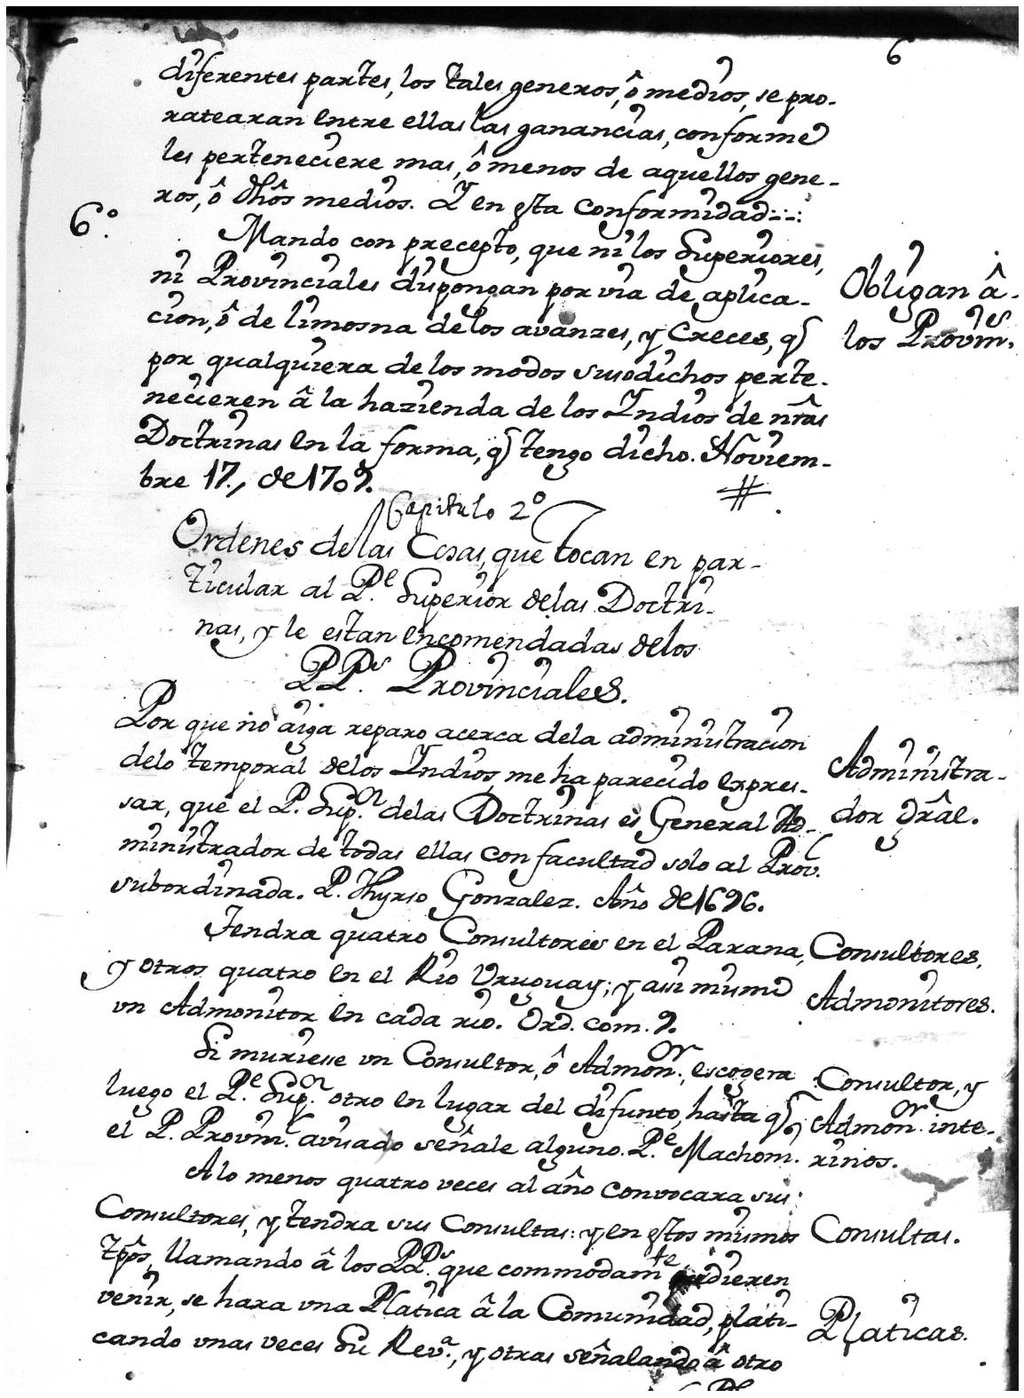 6
diferentes partes, los tales generos, ô medios, se pro-
ratearan entre ellas las ganancias, conforme
les perteneciere mas, ô menos de aquellos gene-
ros, ô dhôs medios. Y en esta conformidad-:-:
6.º
Mando con precepto, que ni los Superiores,
ni Provinciales dispongan por via de aplica-
cion, ô de limosna de los avanzes, y Creces, q̃
por qualquiera de los modos susodichos perte-
necieren â la hazienda de los Indios de nr̃as
Doctrinas en la forma, q̃ tengo dicho. Noviem-
bre 17., de 1707.
#.
Obligan â
los Provin.es
Capitulo 2º
Ordenes de las Cosas, que tocan en par-
ticular al P.e Superior de las Doctri-
nas, y le estan encomendadas de los
PP.s Provinciales.
Por que no aiga reparo acerca dela administracion
delo temporal delos Indios, me ha parecido expres-
sar, que el P. Sup.or delas Doctrinas es General Ad-
ministrador de todas ellas con facultad solo al Prov.l
subordinada. P. Thyrso Gonzalez. Año de 1696.
Administra-
dor Grãl.
Tendra quatro Consultores en el Parana,
y otros quatro en el Rio Uruguay; y assi mismo
un Admonitor en cada rio. Ord. com. 9.
Consultores,
Admonitores.
Si muriese un Consultor, ô Admon.or, escogera
luego el P.e Sup.or otro en lugar del difunto, hasta q̃
el P. Provin. avisado señale alguno. P.e Machoni.
Consultor, y
Admon.or inte-
rinos.
A lo menos quatro veces al año convocara sus
Consultores, y tendra sus Consultas: y en estos mismos
tpôs, llamando â los PP.s que commodam.te pudieren
venir, se hara una Platica â la Comunidad, plati-
cando unas veces Su Rev.a, y otras señalando â otro
Consultas.
Platicas.